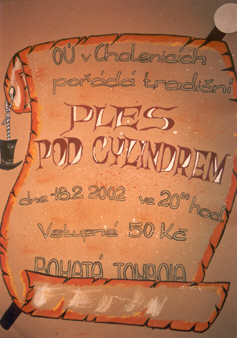 OÚ v Cholenicích
pořádá tradiční
PLES
POD CYLINDREM
dne 16.2 2002 ve 20⁰⁰ hod
Vstupné 50 Kč
BOHATÁ TOMBOLA